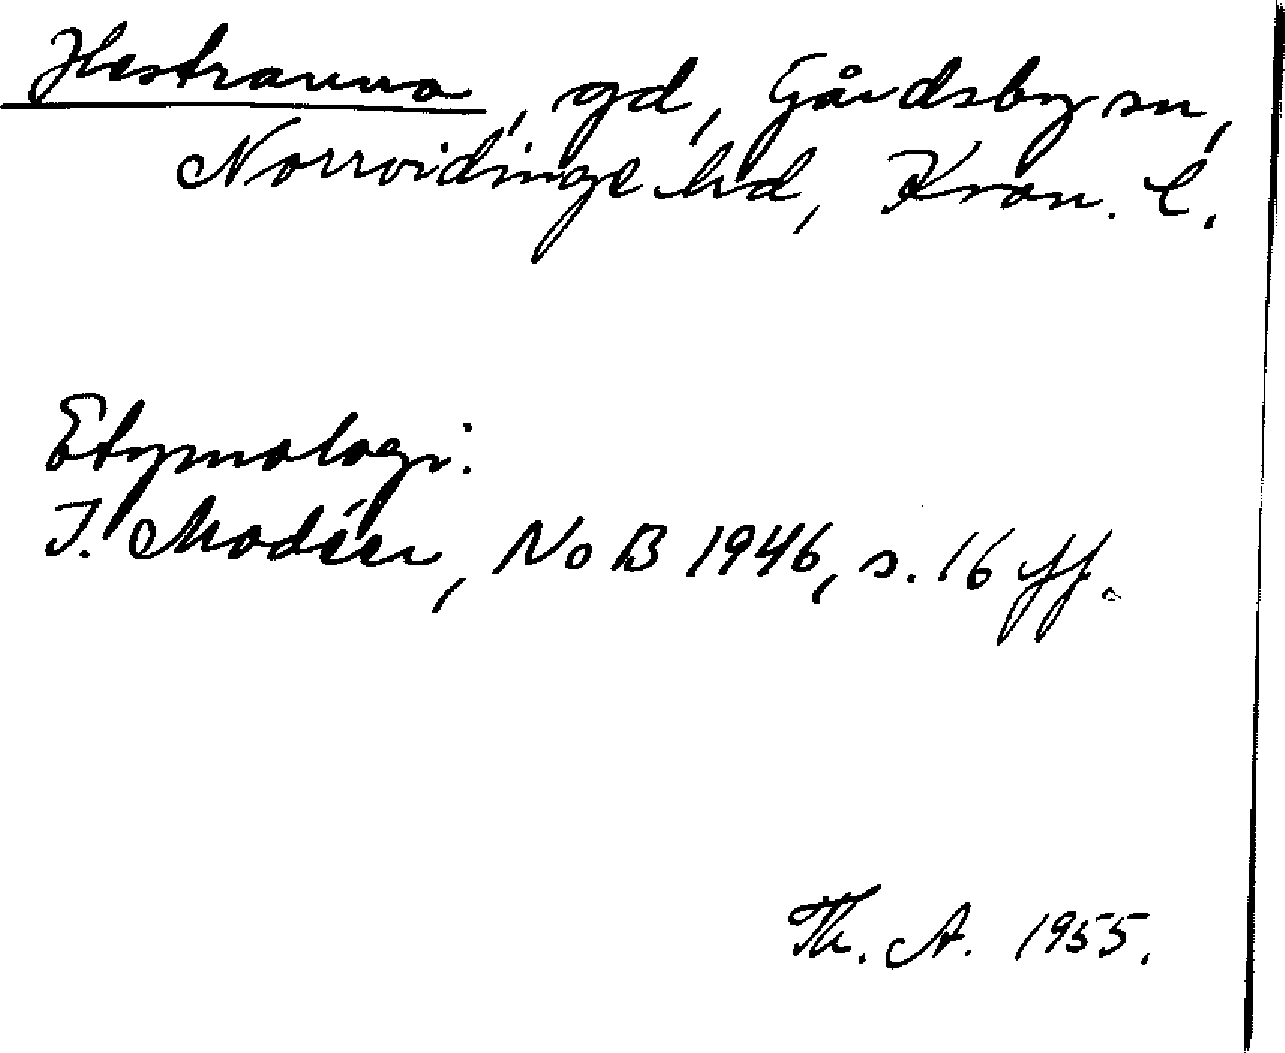 Hestranna, gd, Gårdsby sn,
Norrvidinge hd, Kron. l.
Etymologi:
I. Modéer, NoB 1946, s. 16 ff.
Th. A. 1955.